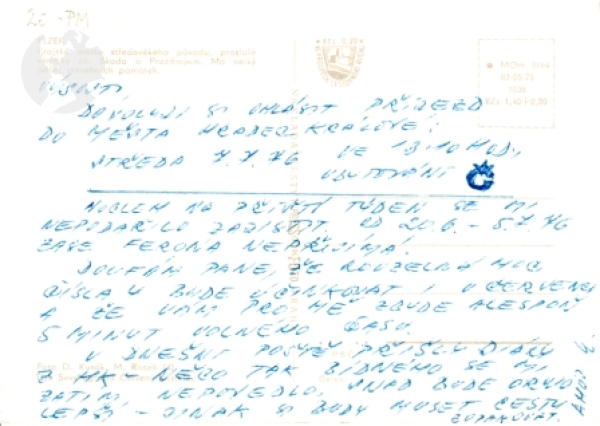 2i -PM
PLZEŇ
Krajské město středověkého původu, proslulé
výrobky Škoda a Prazdrojem. Má velký
památek.
KČS 0,20
MDm 0164
03 05 75
1038
Kčs 1,40+0,20
VISONTI,
DOVOLUJI SI OHLÁSIT PŘÍJEZD
DO MĚSTA HRADEC KRÁLOVÉ:
STŘEDA 7.7.76 VE 13.10 HOD,
UBYTOVÁNÍ Č
NOCLEH NA PŘÍŠTÍ TÝDEN SE MI
NEPODAŘILO ZAJISTIT. OD 20.6. - 5.7.76
ZASE FERONA NEPŘIJÍMÁ.
DOUFÁM PANE, ŽE KOUZELNÁ MOC
ČÍSLA BUDE ÚČINKOVAT I V ČERVENCI
A ŽE VÁM PRO MĚ ZBUDE ALESPOŇ
5 MINUT VOLNÉHO ČASU.
V DNEŠNÍ POŠTĚ PŘIŠLY DIÁKY
Z HK - NĚCO TAK BÍDNÉHO SE MI
ZATÍM NEPOVEDLO, SNAD BUDE ORWO
LEPŠÍ - JINAK SI BUDU MUSET CESTU
ZOPAKOVAT.
AHOJ
Foto D. Kusák, M.